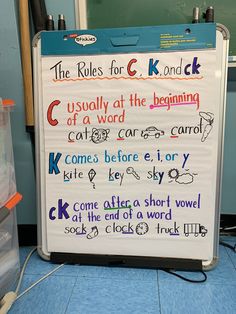 Stickies
The Rules for C, K, and ck
C usually at the beginning
of a word
cat car carrot
K comes before e, i, or y
kite key sky
ck come after a short vowel
at the end of a word
sock clock truck